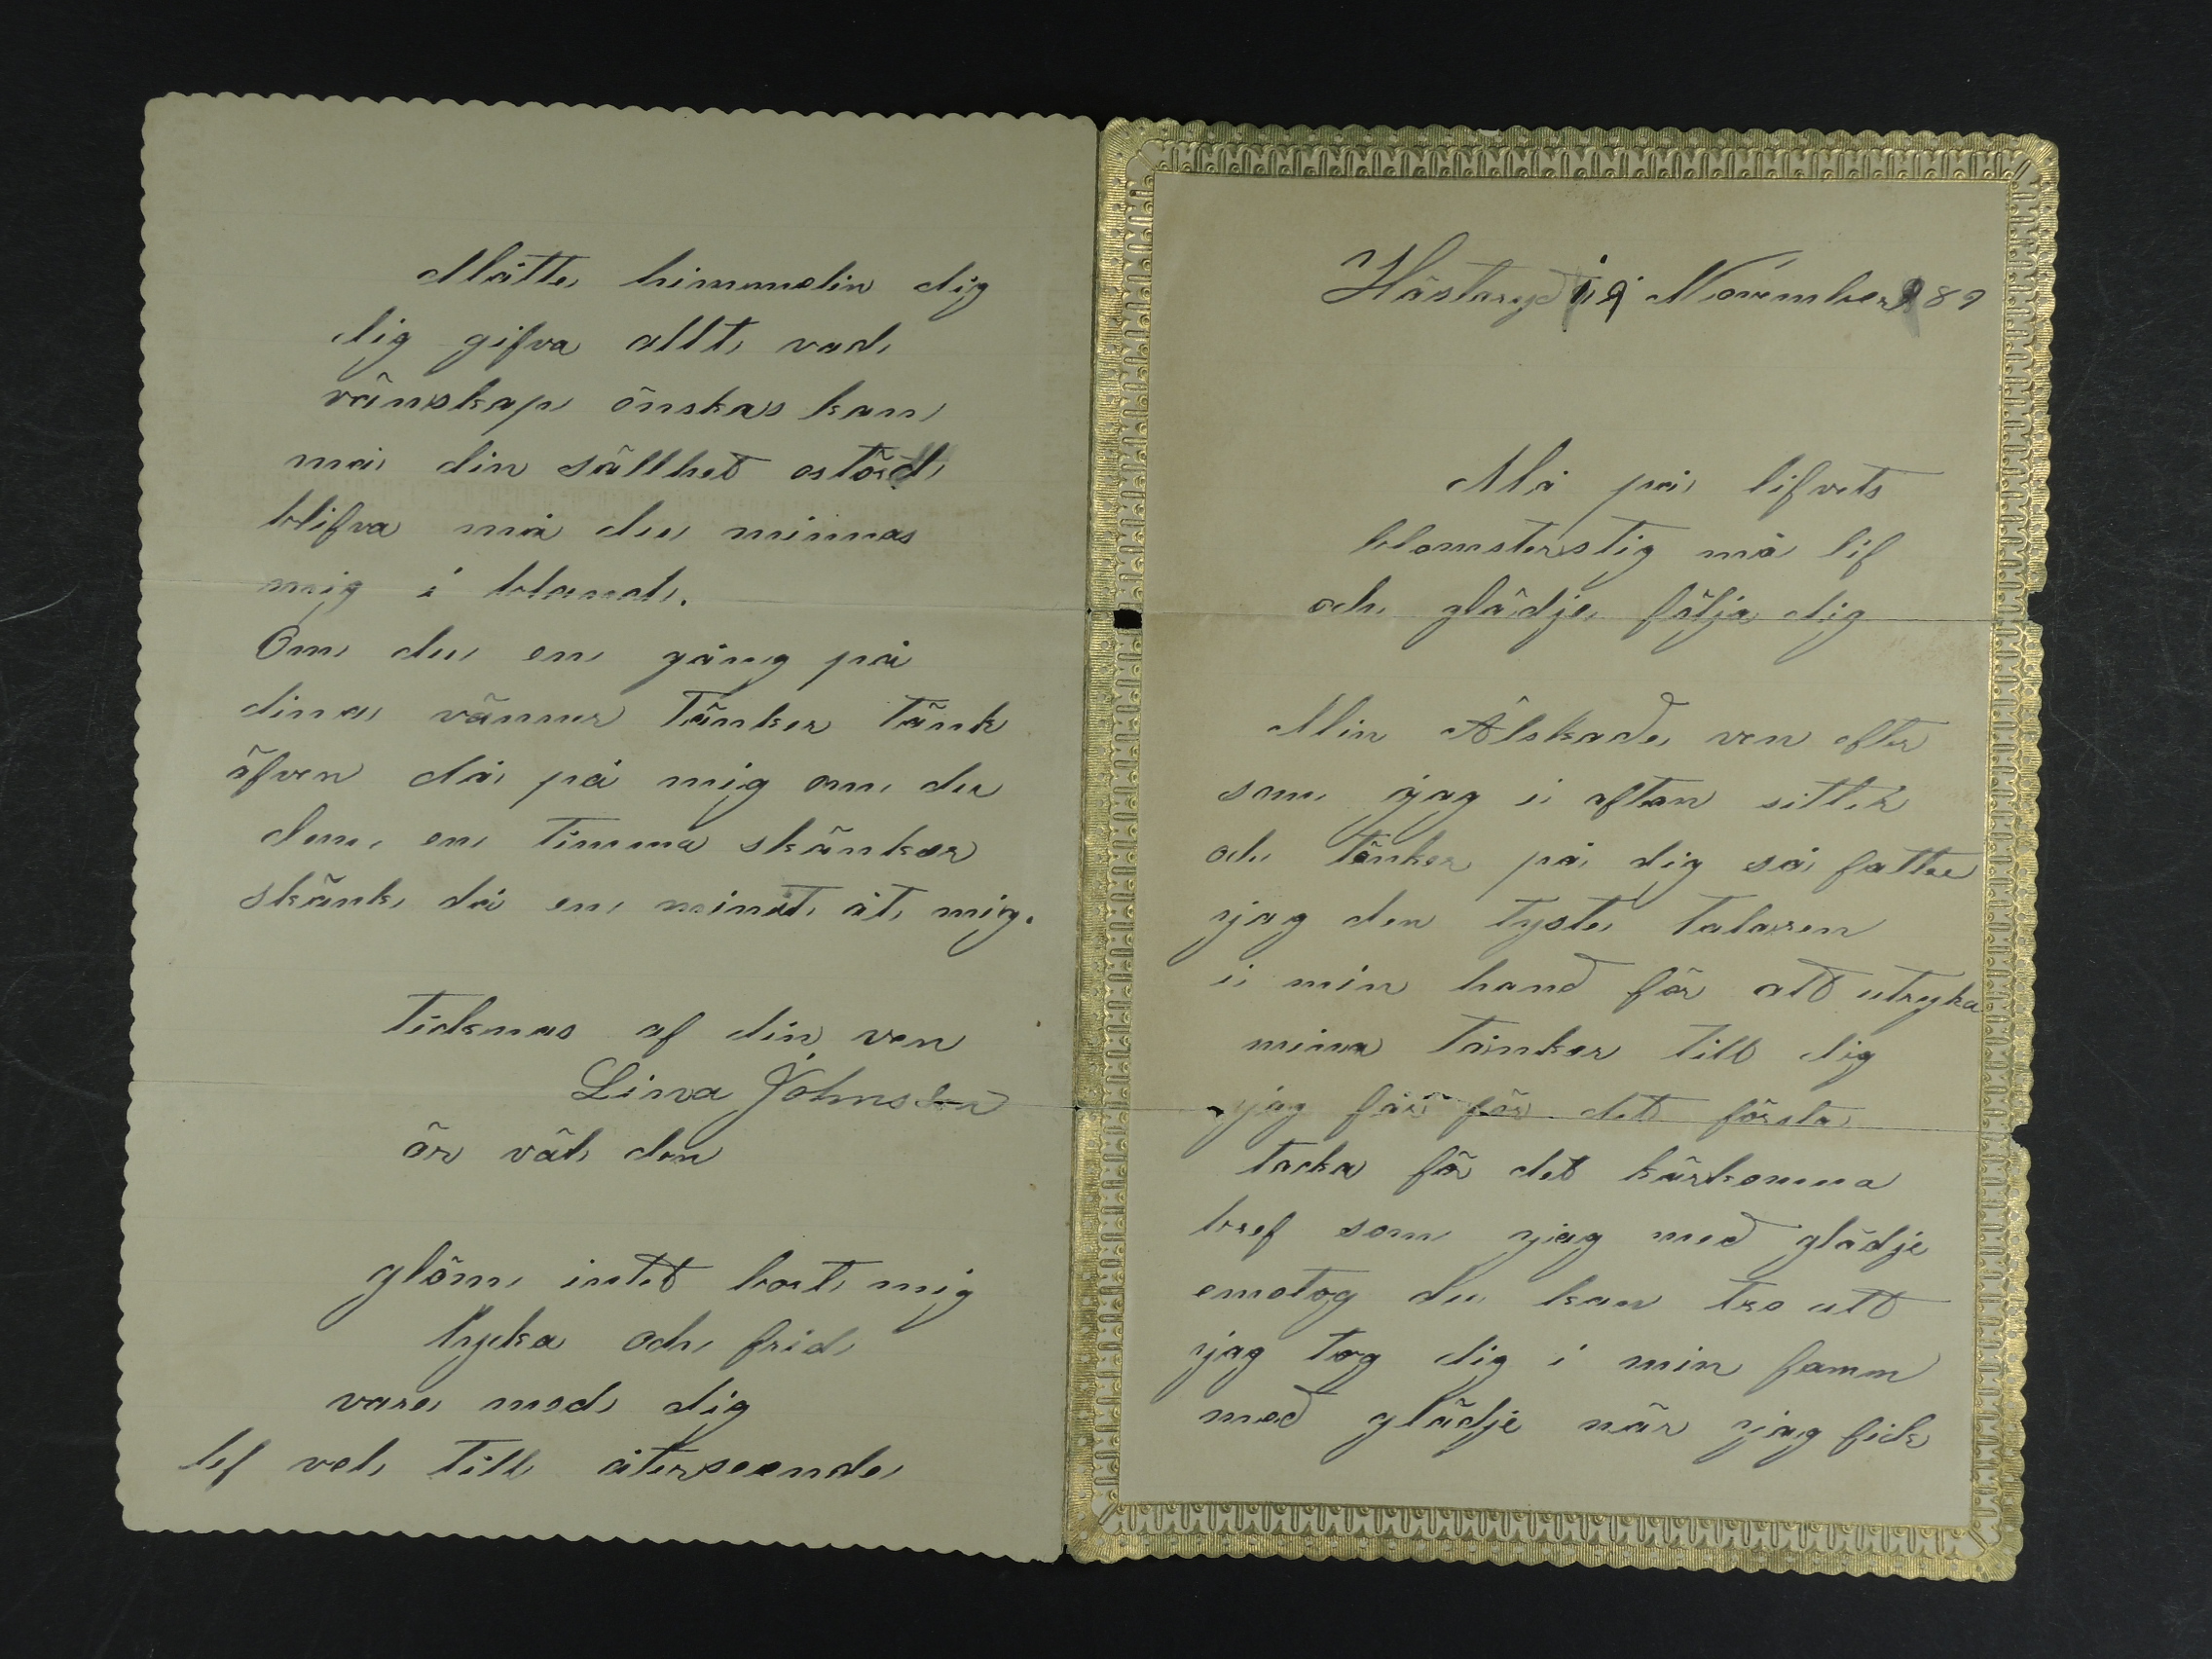 Hästaryd 19 November 89
Må på lifvets
blomsterstig må lif
och glädje följa dig
Min Älskade ven efter
som jag i afton sitter
och tänker på dig så fatter
jag den tyste talaren
i min hand för att utryka
mina tänker till dig
jag får för det första
tacka för det kärkomma
bref som jag med glädje
emotog du kan tro att
jag tog dig i min famm
med glädje när jag fick
Måtte himmelin dig
dig gifva allt vad
vänskap önskas kan
må din sällhet ostörd
blifva må du minnas
mig i bland.
Om du en gång på
dina vänner tänker tänk
äfven då på mig om du
dem en timma skänker
skänk då en minut åt mig.
Tecknas af din ven
Lina Johnsson
är väl den
glöm intet bort mig
lycka och frid
vare med dig
lef vel till återseende